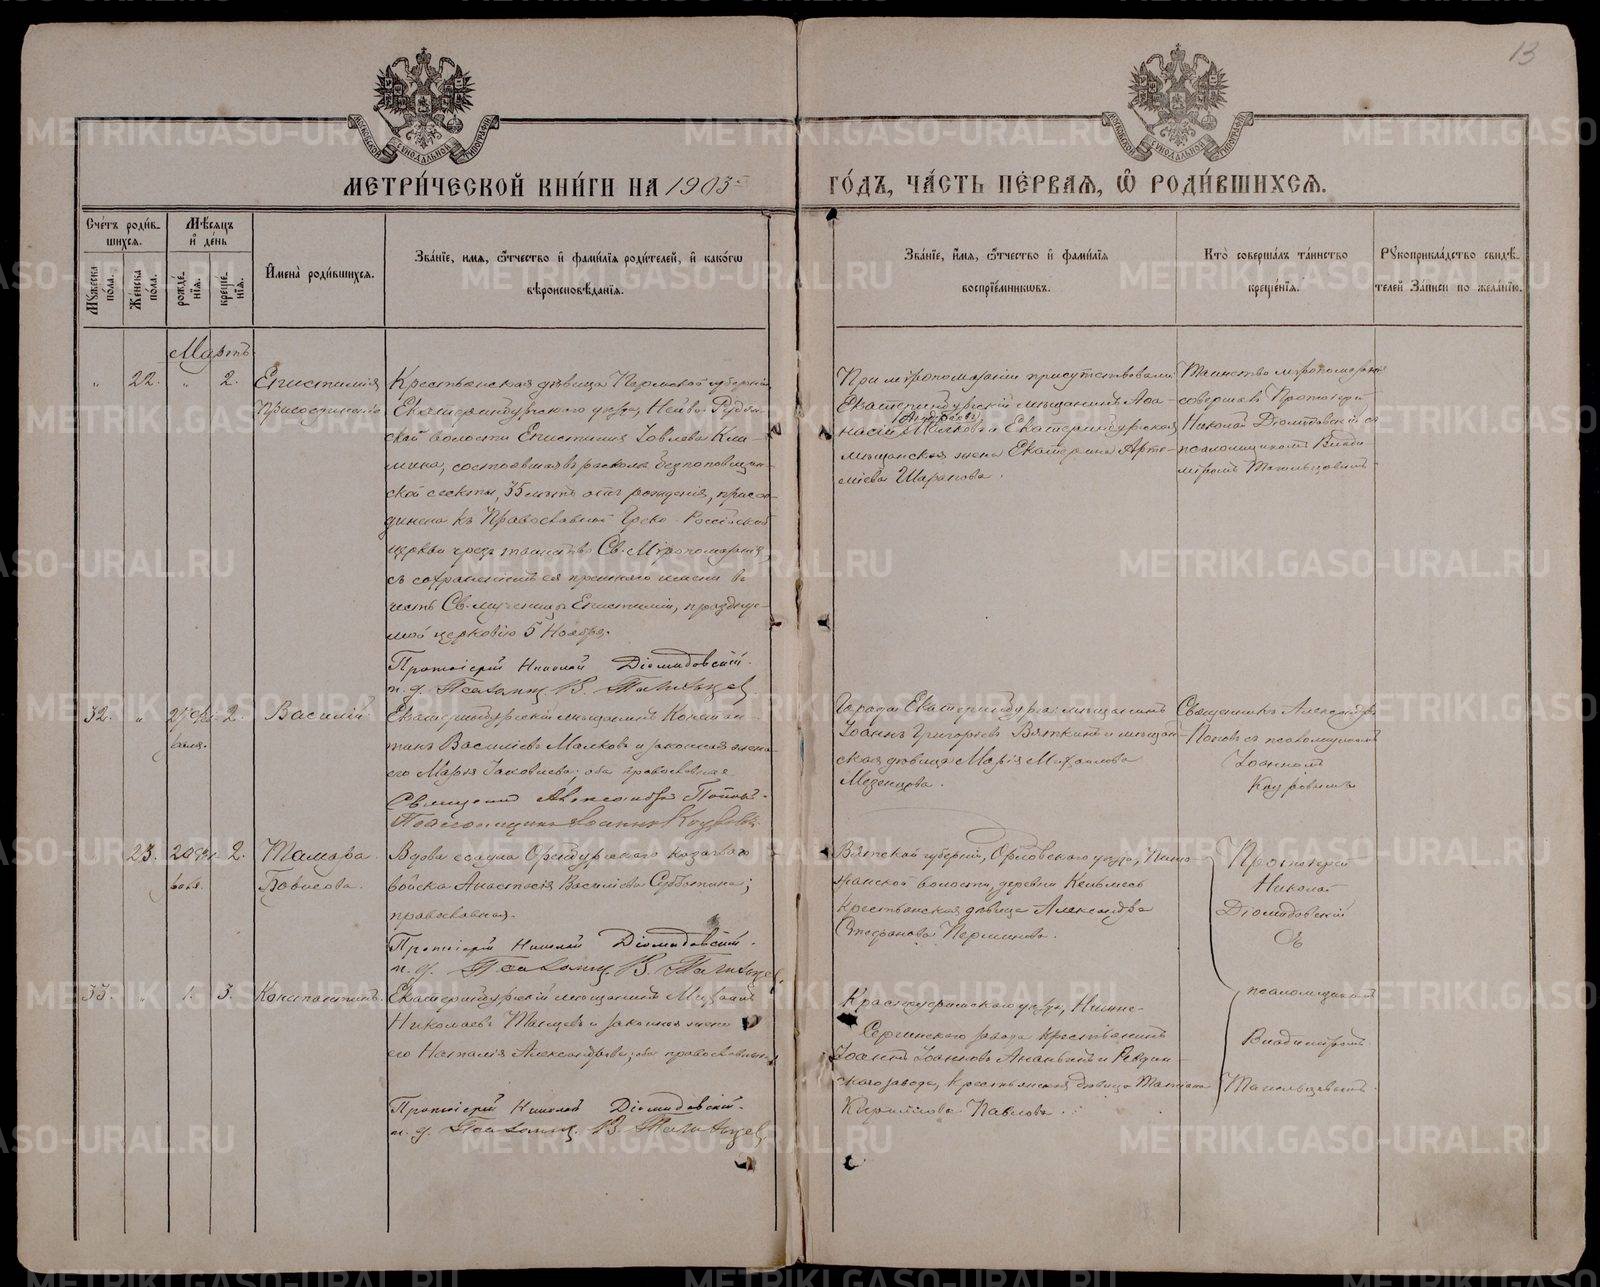 13
МОСКОВСКОЙ СУНОДАЛЬНОЙ ТИПОГРАФІИ
МОСКОВСКОЙ СУНОДАЛЬНОЙ ТИПОГРАФІИ
МЕТРИ́ЧЕСКОЙ КНИ́ГИ НА 1903
ГО́ДЪ, ЧА́СТЬ ПЕ́РВАЯ, Ѽ РОДИ́ВШИХСЯ.
Сче́тъ роди́в-
шихся.
Му́жеска по́ла.
Же́нска по́ла.
Мѣ́сяцъ
и де́нь
рожде́нія.
креще́нія.
Имена̀ роди́вшихся.
Зва́ніе, имя, ѻ́тчество и фами́лія роди́телей, и како́гѡ
вѣроисповѣ́данія.
Зва́ніе, и́мя, ѻ́тчество и фами́лія
воспріе́мниковъ.
Кто̀ соверша́лъ та́инство
креще́нія.
Рукоприкла́дство свидѣ́-
телей за́писи по жела́нію.
Мартъ
" 22. " 2.
Епистимія
Присоединена
Крестьянская дѣвица Пермской губерніи
Екатеринбургскаго уѣзда, Нейво-Рудян-
ской волости Епистимія Іовлева Кли-
мина, состоявшая въ расколѣ безпоповщин-
ской секты, 35 лѣтъ отъ рожденія, присо-
динена къ Православной Греко-Россійской
церкви чрезъ таинство Св. Мѵропомазанія
съ сохраненіемъ ея прежняго имени въ
честь Св. мученицы Епистиміи, празднуе-
мой церковію 5 Ноября.
Протоіерей Николай Діомидовскій.
и. д. Псаломщ. В. Тагильцев
При мѵропомазаніи присутствовали:
Екатеринбургскій мѣщанинъ Аѳа-
Андреевъ
насій Мячковъ и Екатеринбургская
мѣщанская жена Екатерина Арте-
міева Шарапова.
Таинство мѵропомазанія
совершалъ Протоіерей
Николай Діомидовскій съ
псаломщикомъ Влади-
міромъ Тагильцевымъ
32. " 27 фев- 2.
раля.
Василій.
Екатеринбургскій мѣщанинъ Констан-
тинъ Василіевъ Малковъ и законная жена
его Марія Іаковлева; оба православные
Священникъ Александръ Поповъ.
Псаломщикъ Іоаннъ Кауровъ
Города Екатеринбурга: мѣщанинъ
Іоаннъ Григорьевъ Вяткинъ и мѣщан-
ская дѣвица Марія Михаилова
Мезенцова.
Священникъ Александръ
Поповъ съ псаломщикомъ
Іоанномъ
Кауровымъ
23. 20 фев- 2.
раля.
Тамара
Борисова.
Вдова есаула Оренбургскаго казачьяго
войска Анастасія Василіева Субботина;
православная.
Протоіерей Николай Діомидовскій.
и. д. Псаломщ. В. Тагильцев
Вятской губерніи, Орловскаго уѣзда,
волости, деревни
Крестьянская дѣвица Александра
Стефанова Перминова.
Протоіерей
Николай
Діомидовскій
съ
33. " 1. 3.
Константинъ.
Екатеринбургскій мѣщанинъ Михаилъ
Николаевъ и законная жена
его Наталія Александрова; оба православные
Протоіерей Николай Діомидовскій.
и. д. Псаломщ. В. Тагильцев
Красноуфимскаго уѣзда, Нижне-
Сергинскаго завода крестьянинъ
Іоаннъ Іоанновъ Ананьинъ и Ревдин-
скаго завода, крестьянская дѣвица Татіана
Кириллова Павлова.
псаломщикомъ
Владиміромъ
Тагильцевымъ.
METRIKI.GASO-URAL.RU